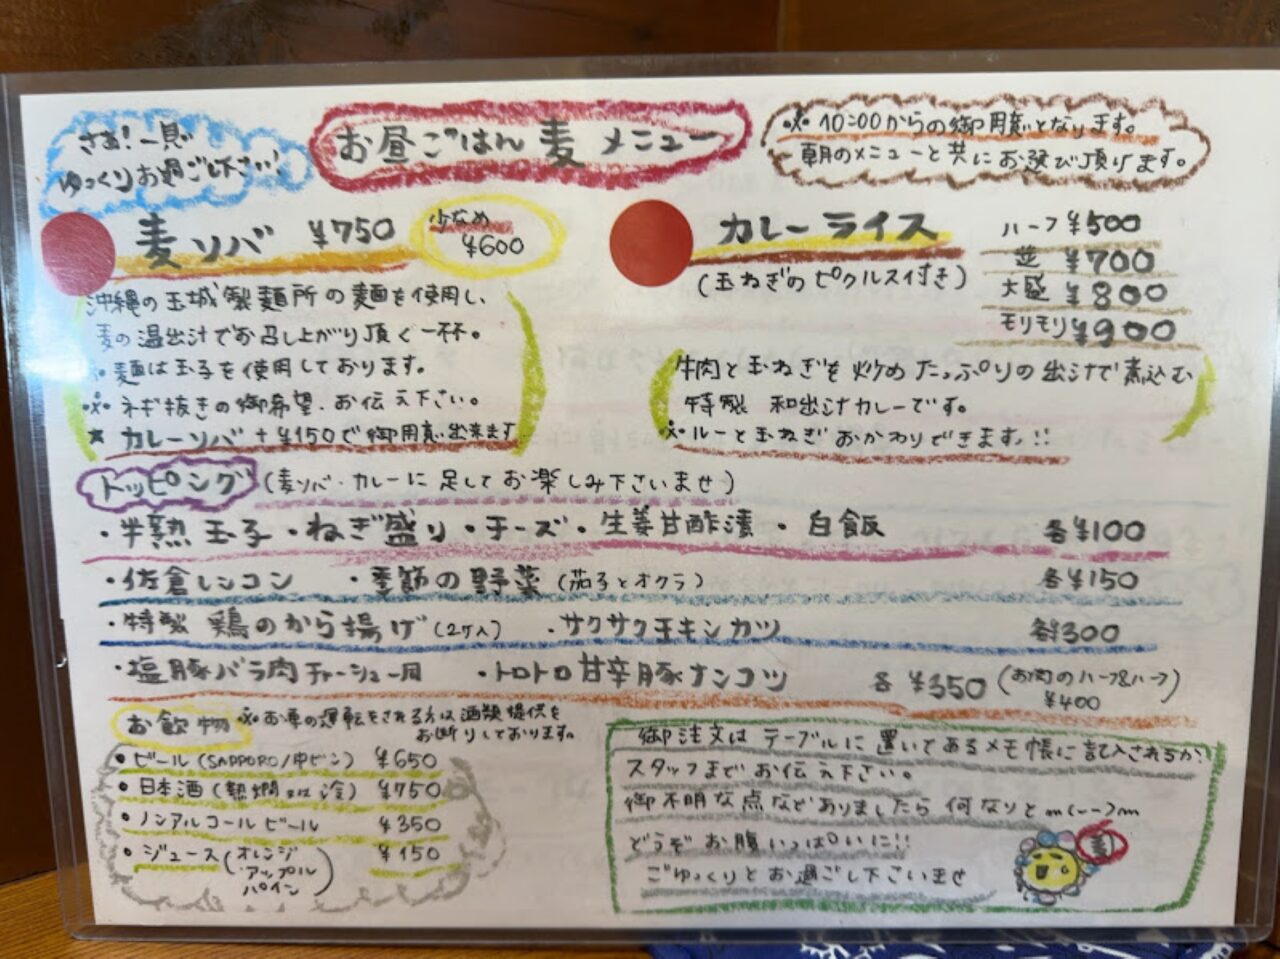 さあ!一息
ゆっくりお過ごし下さい!
お昼ごはん 麦 メニュー
※10:00からの御用意となります。
朝のメニューと共にお選び頂けます。
麦ソバ ¥750
少なめ
¥600
沖縄の玉城製麺所の麺を使用し、
麦の温出汁でお召し上がり頂く一杯。
※麺は玉子を使用しております。
※ネギ抜きの御希望、お伝え下さい。
★カレーソバ+¥150で御用意出来ます
カレーライス
(玉ねぎのピクルス付き)
ハーフ ¥500
並 ¥700
大盛 ¥800
モリモリ ¥900
牛肉と玉ねぎを炒めたっぷりの出汁で煮込む
特製 和出汁カレーです。
※ルーと玉ねぎおかわりできます!!
トッピング(麦ソバ・カレーに足してお楽しみ下さいませ)
・半熟玉子・ねぎ盛り・チーズ・生姜甘酢漬・白飯 各¥100
・佐倉レンコン ・季節の野菜(茄子とオクラ) 各¥150
・特製 鶏のから揚げ(2ヶ入) ・サクサクチキンカツ 各¥300
・塩豚バラ肉チャーシュー風 ・トロトロ甘辛豚ナンコツ 各¥350(お肉のハーフ&ハーフ)
¥400
お飲物 ※お車の運転をされる方は酒類提供を
お断りしております。
・ビール(SAPPORO/中ビン) ¥650
・日本酒(熱燗又は冷) ¥750
・ノンアルコールビール ¥350
・ジュース(オレンジ ¥150
・アップル
パイン)
御注文はテーブルに置いてあるメモ帳に記入されるか、
スタッフまでお伝え下さい。
御不明な点などありましたら何なりとm(--)m
どうぞお腹いっぱいに!!
ごゆっくりとお過ごし下さいませ
麦